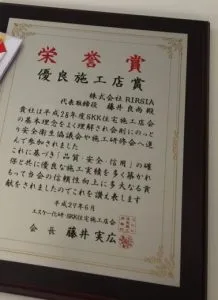 栄誉賞
優良施工店賞
株式会社 RIRSIA
代表取締役 藤井良尚殿
貴社は平成28年度SKK住宅施工店会
の基本理念をよく理解され会則にのっと
り安全衛生協議会や施工研修会へ進
んで参加されました
これに基づき「品質・安全・信用」の確
保と共に優良な施工実績を多く築かれ
もって当会の信頼性向上に多大なる貢
献をされましたのでこれを讃え表します
平成29年6月
エスケー化研・SKK住宅施工店会
会長 藤井実広